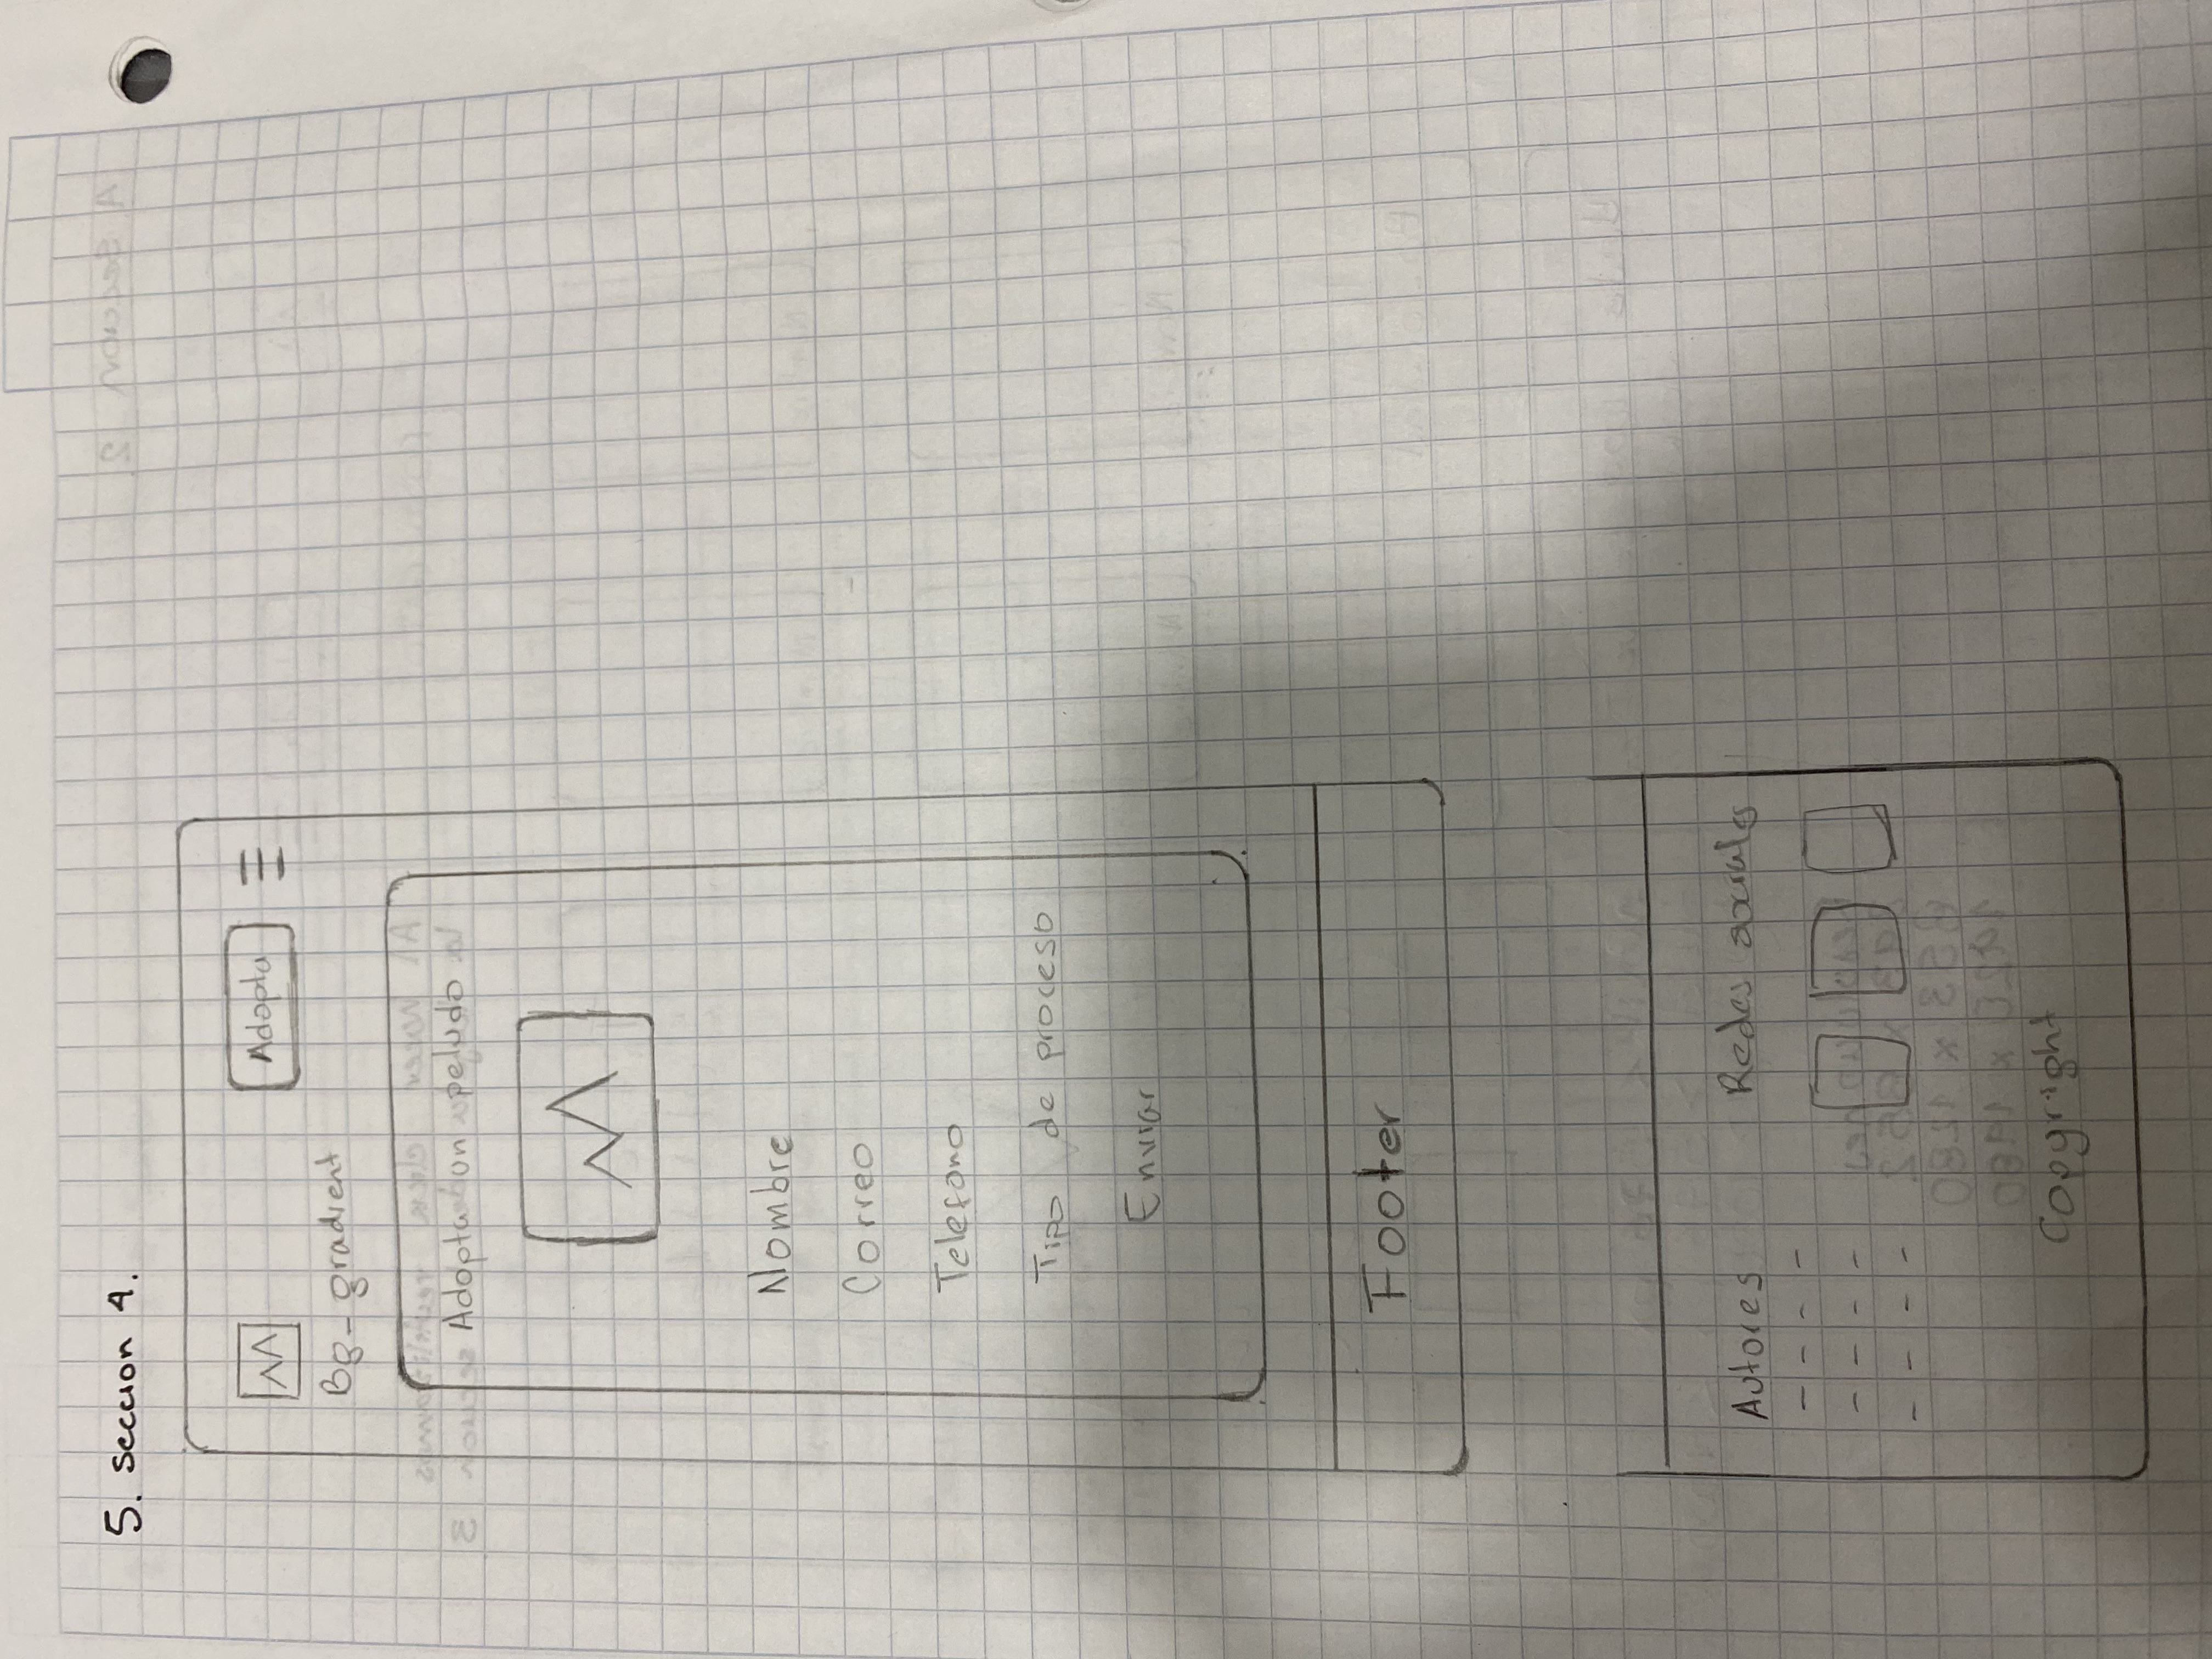 5. Seccion 4.
Adopta
Bg_gradient
Adopta un peludo
Nombre
Correo
Telefono
Tipo de proceso
Enviar
Footer
Autores Redes sociales
Copyright